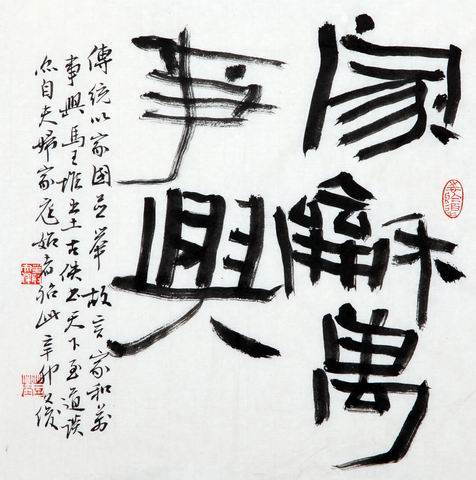 家龢萬
事興
傳統以家國並舉故言家和萬
事興馬王堆出土古佚書天下至道談
亦自夫婦家庭始 此辛卯